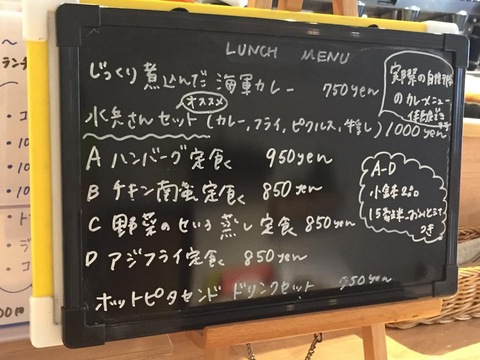 LUNCH MENU
じっくり煮込んだ海軍カレー 750yen
オススメ
水兵さんセット(カレー,フライ,ピクルス,牛乳) 1000yen
A ハンバーグ定食 950yen
B チキン南蛮定食 850yen
C 野菜のせいろ蒸し定食 850yen
D アジフライ定食 850yen
ホットピタサンド ドリンクセット
実際の自衛隊
のカレーメニュー
A-D
小鉢2品
つき
ランチ